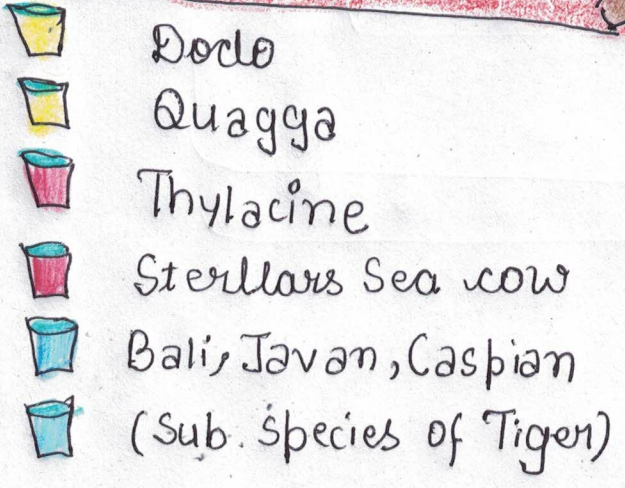 Dodo
Quagga
Thylacine
Sterllars Sea cow
Bali, Javan, Caspian
(Sub. Species of Tiger)